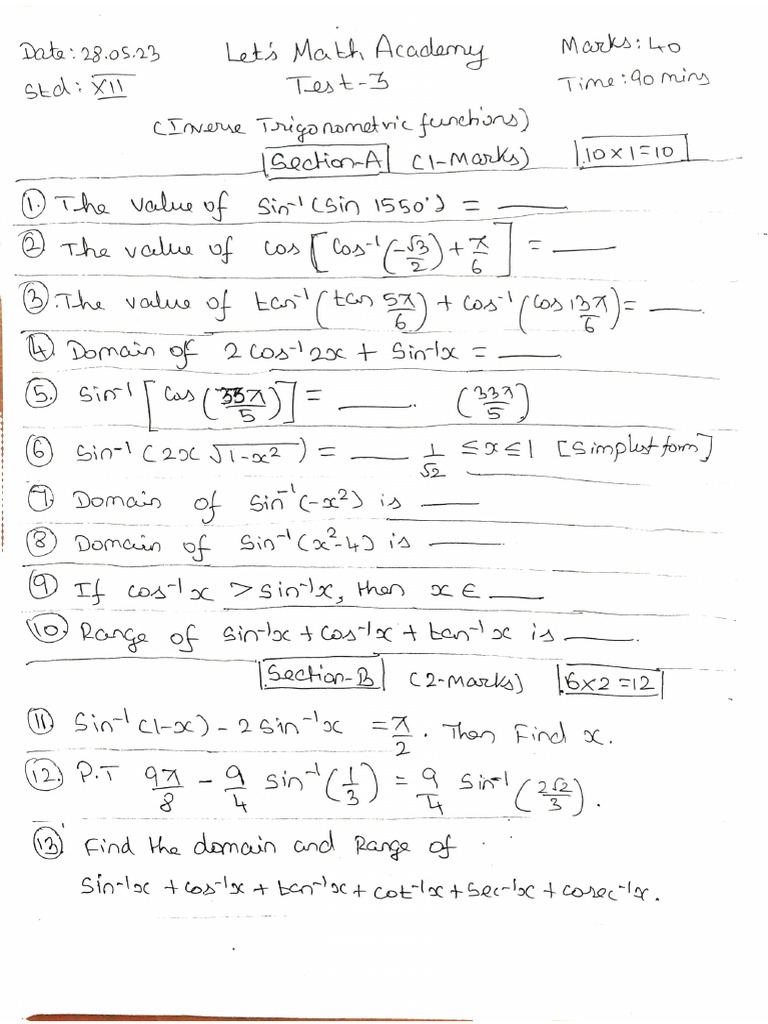 Date: 28.05.23 Let's Math Academy Marks: 40
Std: XII Test-3 Time: 90 mins
(Inverse Trigonometric functions)
Section-A (1-Marks) 10×1=10
① The value of Sin⁻¹(Sin 1550°) = ____
② The value of cos [Cos⁻¹(-√3/2) + π/6] = ____
③ The value of tan⁻¹(tan 5π/6) + cos⁻¹(Cos 13π/6) = ____
④ Domain of 2 Cos⁻¹2x + Sin⁻¹x = ____
⑤ Sin⁻¹ [Cos (33π/5)] = ____. (33π/5)
⑥ Sin⁻¹(2x √1-x²) = ____ 1/√2 ≤ x ≤ 1 [Simplest form]
⑦ Domain of Sin⁻¹(-x²) is ____
⑧ Domain of Sin⁻¹(x²-4) is ____
⑨ If cos⁻¹x > Sin⁻¹x, then x ∈ ____
⑩ Range of sin⁻¹x + cos⁻¹x + tan⁻¹x is ____.
Section-B (2-marks) 6×2=12
⑪ Sin⁻¹(1-x) - 2 Sin⁻¹x = π/2. Then Find x.
⑫ P.T 9π/8 - 9/4 Sin⁻¹(1/3) = 9/4 Sin⁻¹(2√2/3).
⑬ Find the domain and Range of
Sin⁻¹x + cos⁻¹x + tan⁻¹x + cot⁻¹x + Sec⁻¹x + cosec⁻¹x.